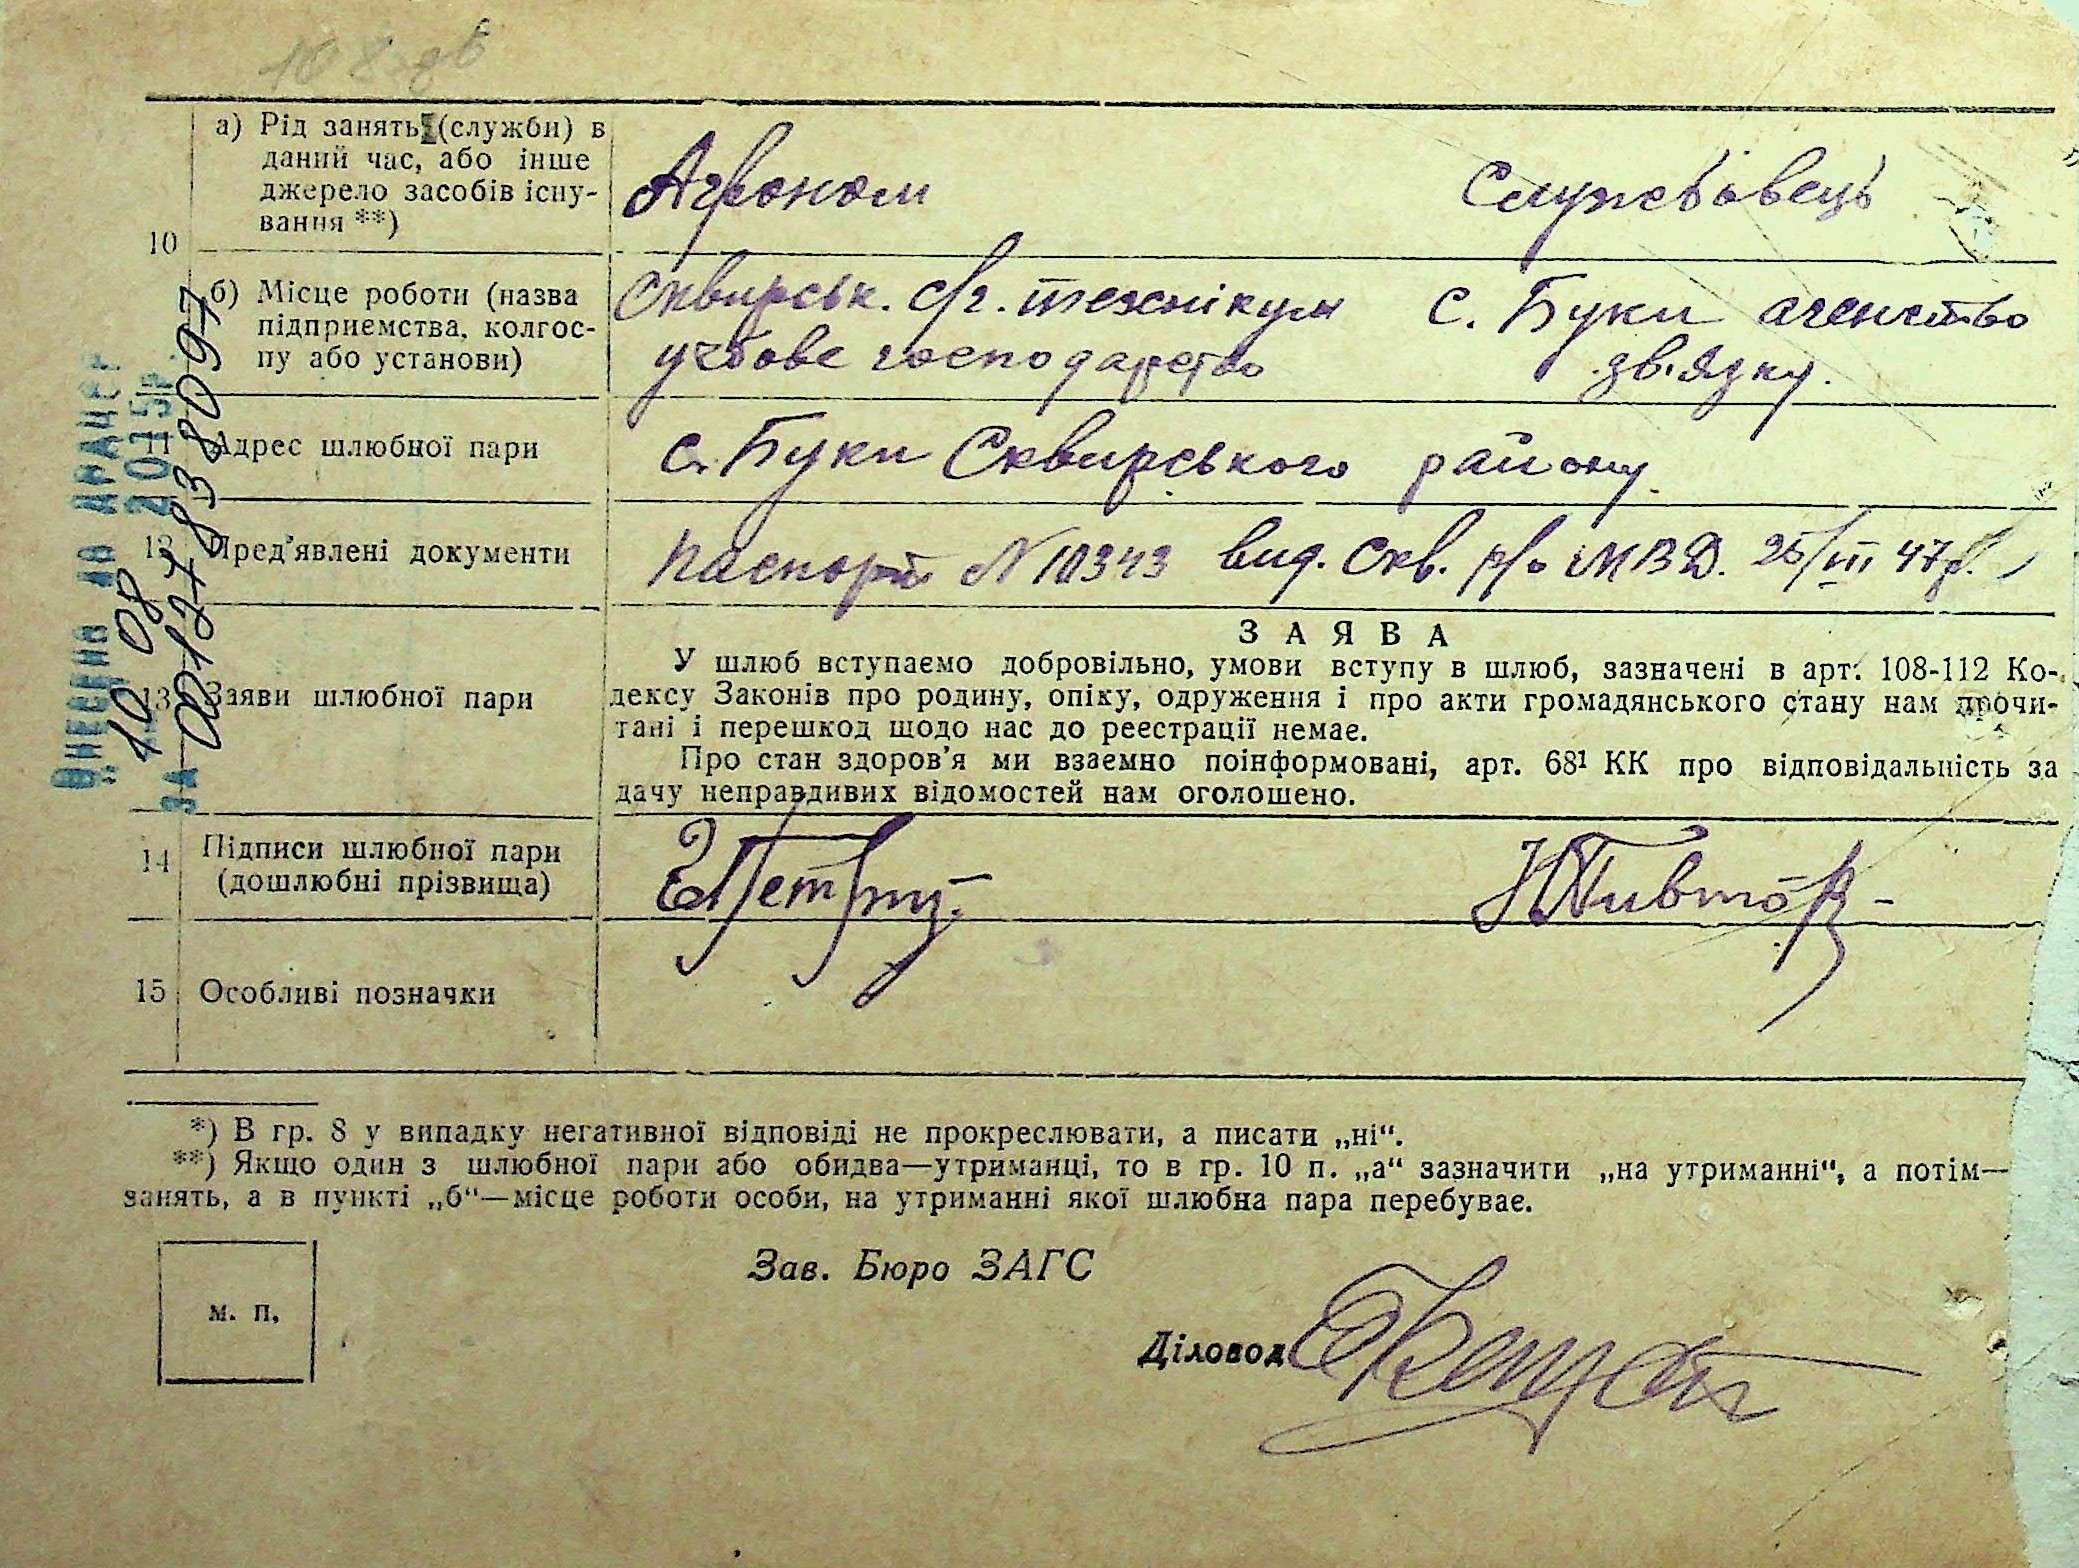 а) Рід занять (служби) в
даний час, або інше
джерело засобів існу-
вання **)
Агроном
Службовець
10
б) Місце роботи (назва
підприємства, колгос-
пу або установи)
Сквирськ. с/г. технікум
учбове господарство
с. Буки агенство
зв'язку.
11 Адрес шлюбної пари
с. Буки Сквирського району.
12 Пред'явлені документи
паспорт N 10343 вид. Скв. р/о МВД. 25/III 47р.
13 Заяви шлюбної пари
ЗАЯВА
У шлюб вступаємо добровільно, умови вступу в шлюб, зазначені в арт. 108-112 Ко-
дексу Законів про родину, опіку, одруження і про акти громадянського стану нам прочи-
тані і перешкод щодо нас до реєстрації немає.
Про стан здоров'я ми взаємно поінформовані, арт. 68¹ КК про відповідальність за
дачу неправдивих відомостей нам оголошено.
14 Підписи шлюбної пари
(дошлюбні прізвища)
15 Особливі позначки
*) В гр. 8 у випадку негативної відповіді не прокреслювати, а писати „ні“.
**) Якщо один з шлюбної пари або обидва—утриманці, то в гр. 10 п. „а“ зазначити „на утриманні“, а потім—
занять, а в пункті „б“—місце роботи особи, на утриманні якої шлюбна пара перебуває.
Зав. Бюро ЗАГС
м. п.
Діловод
ВНЕСЕНО ДО ДРАЦСГ
„10 08 2015р.
ЗА 00127838097